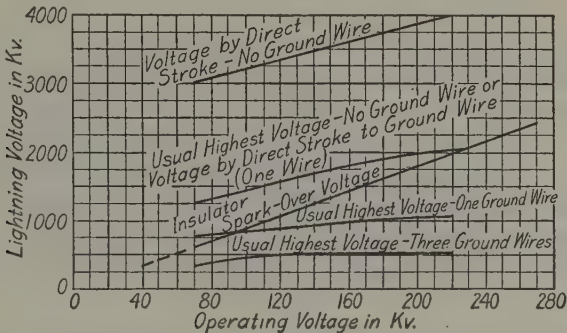 Lightning Voltage in Kv.
4000
3000
2000
1000
0
Voltage by Direct
Stroke-No Ground Wire
Usual Highest Voltage-No Ground Wire or
Voltage by Direct Stroke to Ground Wire
(One Wire)
Insulator
Spark-Over Voltage
Usual Highest Voltage-One Ground Wire
Usual Highest Voltage-Three Ground Wires
0 40 80 120 160 200 240 280
Operating Voltage in Kv.